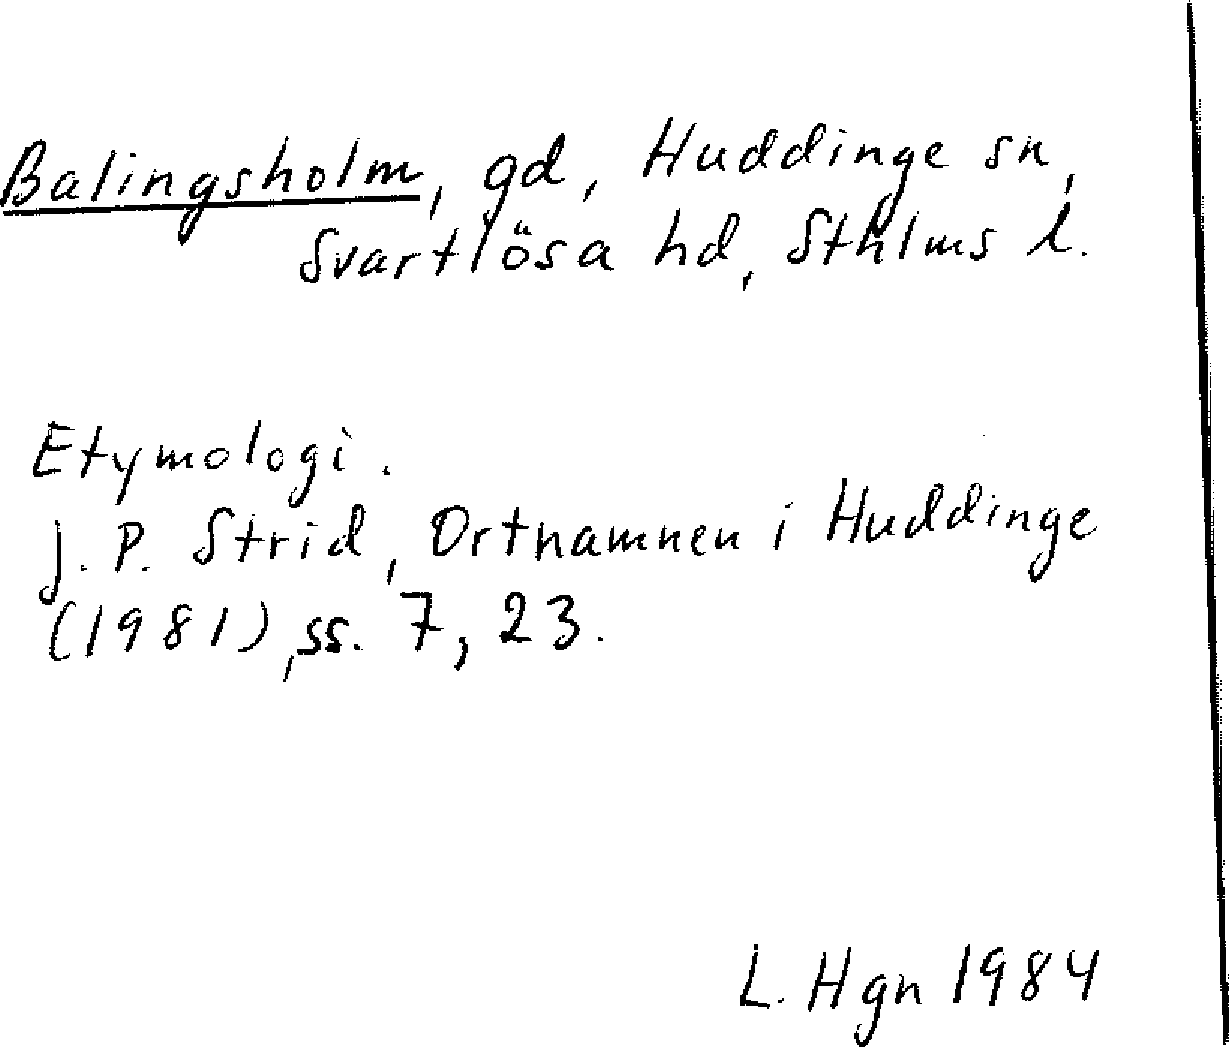 Balingsholm, gd, Huddinge sn,
Svartlösa hd, Sthlms l.
Etymologi.
J. P. Strid, Ortnamnen i Huddinge
(1981), ss. 7, 23.
L. Hgn 1984